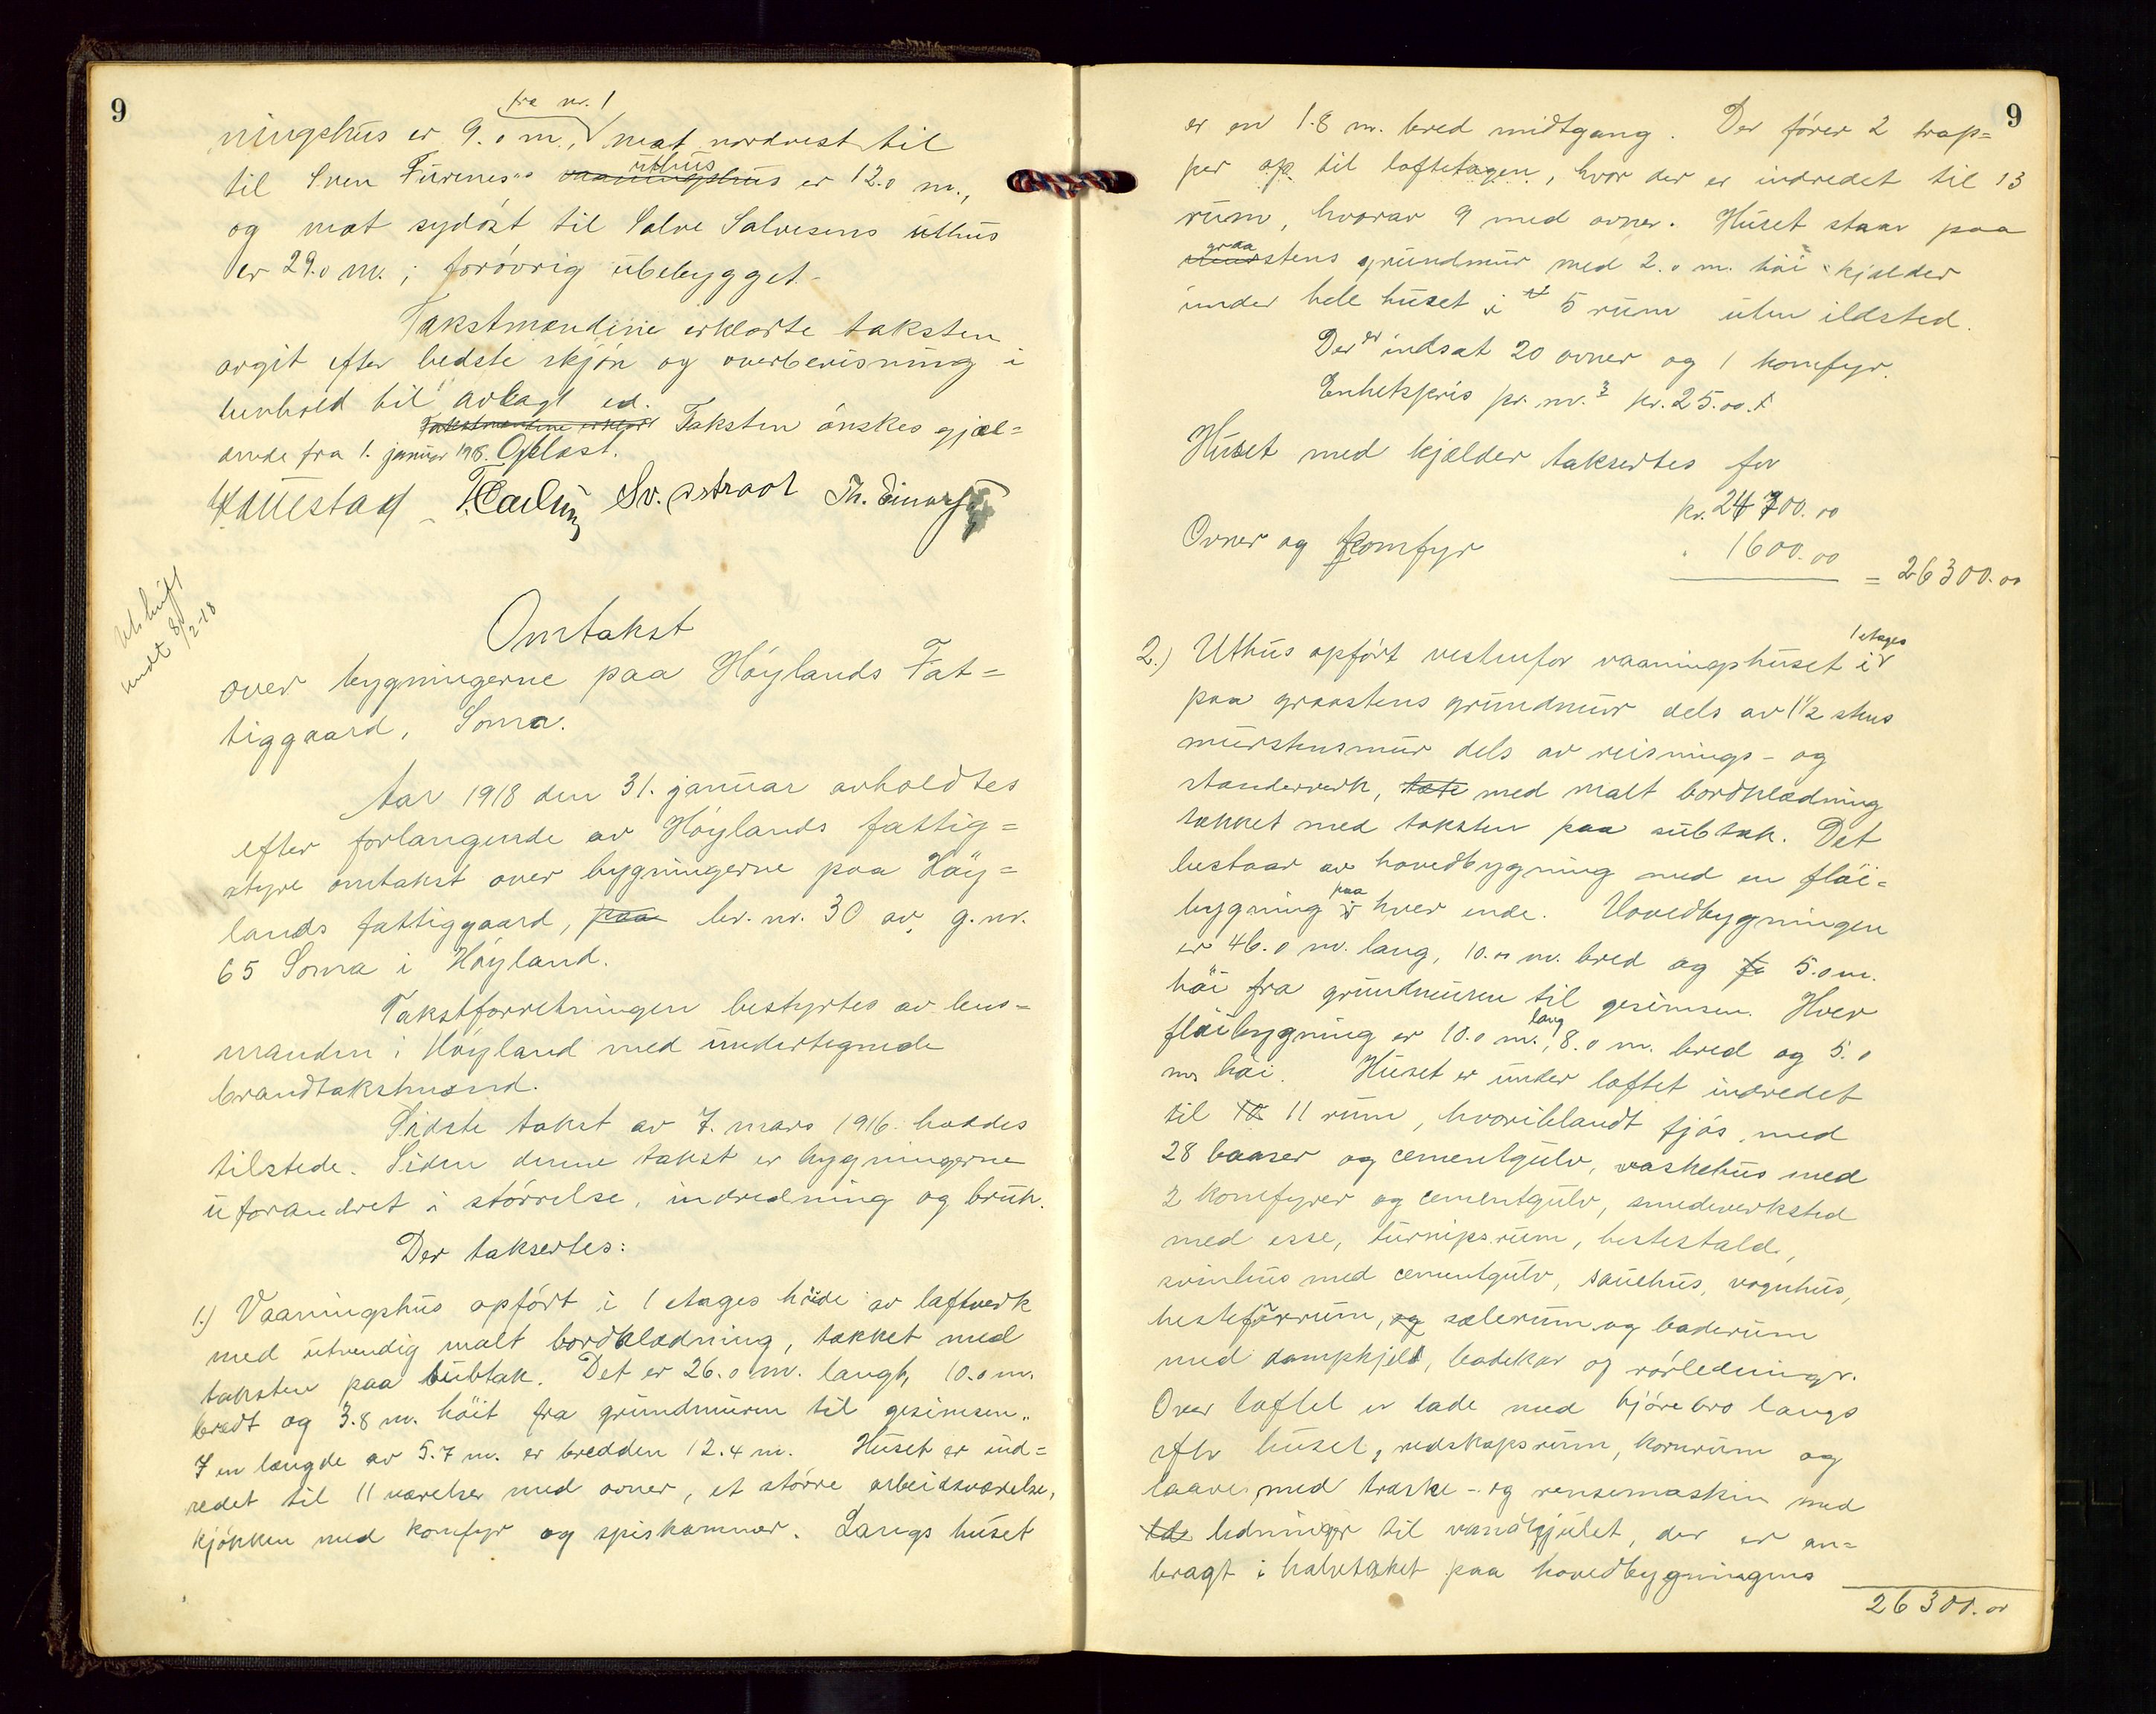 9
fra nr. 1
ningshus er 9.0 m., mot nordvest til
til Sven Furenes's vaaningshus uthus er 12.0 m.,
og mot sydöst til Salve Salvesens uthus
er 29.0 m.; forövrig ubebygget.
Takstmændene erklærte taksten
avgit efter bedste skjön og overbevisning i
henhold til avlagt ed.
Takstmændene erklær Taksten önskes gjæl=
dende fra 1. januar 1918. Oplæst.
Sv. Th.
Utskrift
sendt 8/2-18
Omtakst
over bygningerne paa Höylands Fat=
tiggaard, Soma.
Aar 1918 den 31. januar avholdtes
efter forlangende av Höylands fattig=
styre omtakst over bygningerne paa Höy=
lands fattiggaard, paa br. nr. 30 av g. nr.
65 Soma i Höyland.
Takstforretningen bestyrtes av lens=
manden i Höyland med undertegnede
brandtakstmænd.
Sidste takst av 7. mars 1916 haddes
tilstede. Siden denne takst er bygningerne
uforandret i störrelse, indredning og bruk.
Der taksertes:
1.) Vaaningshus opfört i 1 etages höide av laftverk
med utvendig malt bordklædning, tækket med
taksten paa subtak. Det er 26.0 m. langt, 10.0 m.
bredt og 3.8 m. höit fra grundmuren til gesimsen.
I en længde av 5.7 m. er bredden 12.4 m. Huset er ind=
redet til 11 værelser med ovner, et större arbeidsværelse,
kjökken med komfyr og spiskammer. Langs huset
9
er en 1.8 m. bred midtgang. Der förer 2 trap=
per op til loftetagen, hvor der er indredet til 13
rum, hvorav 9 med ovner. Huset staar paa
graa
stens grundmur med 2.0 m. höi kjælder
under hele huset i 5 rum uten ildsted.
Der er indsat 20 ovner og 1 komfyr.
Enhetspris pr. m.3 kr. 25.00.
Huset med kjælder taksertes for
kr. 24700.00
Ovner og komfyr " 1600.00 = 26300.00
2.) Uthus opfört vestenfor vaaningshuset i 1 etages
paa graastens grundmur dels av 1 1/2 stens
murstensmur dels av reisnings- og
standerverk, med malt bordklædning
tækket med taksten paa subtak. Det
bestaar av hovedbygning med en flöi=
bygning i paa hver ende. Hovedbygningen
er 46.0 m. lang, 10.0 m. bred og 5.0 m.
höi fra grundmuren til gesimsen. Hver
flöibygning er 10.0 m. lang, 8.0 m. bred og 5.0
m. höi. Huset er under loftet indredet
til 10 11 rum, hvoriblandt fjös med
28 baaser og cementgulv, vaskehus med
2 komfyrer og cementgulv, smedeverksted
med esse, turnipsrum, hestestald,
svinhus med cementgulv, sauehus, vognhus,
hesteförrum, og sælerum og baderum
med dampkjel, badekar og rörledninger.
Over loftet er lade med kjörebro langs
efter huset, redskapsrum, kornrum og
laave med træske- og rensemaskin med
ledninger til vandhjulet, der er an=
bragt i halvtaket paa hovedbygningens
26300.00